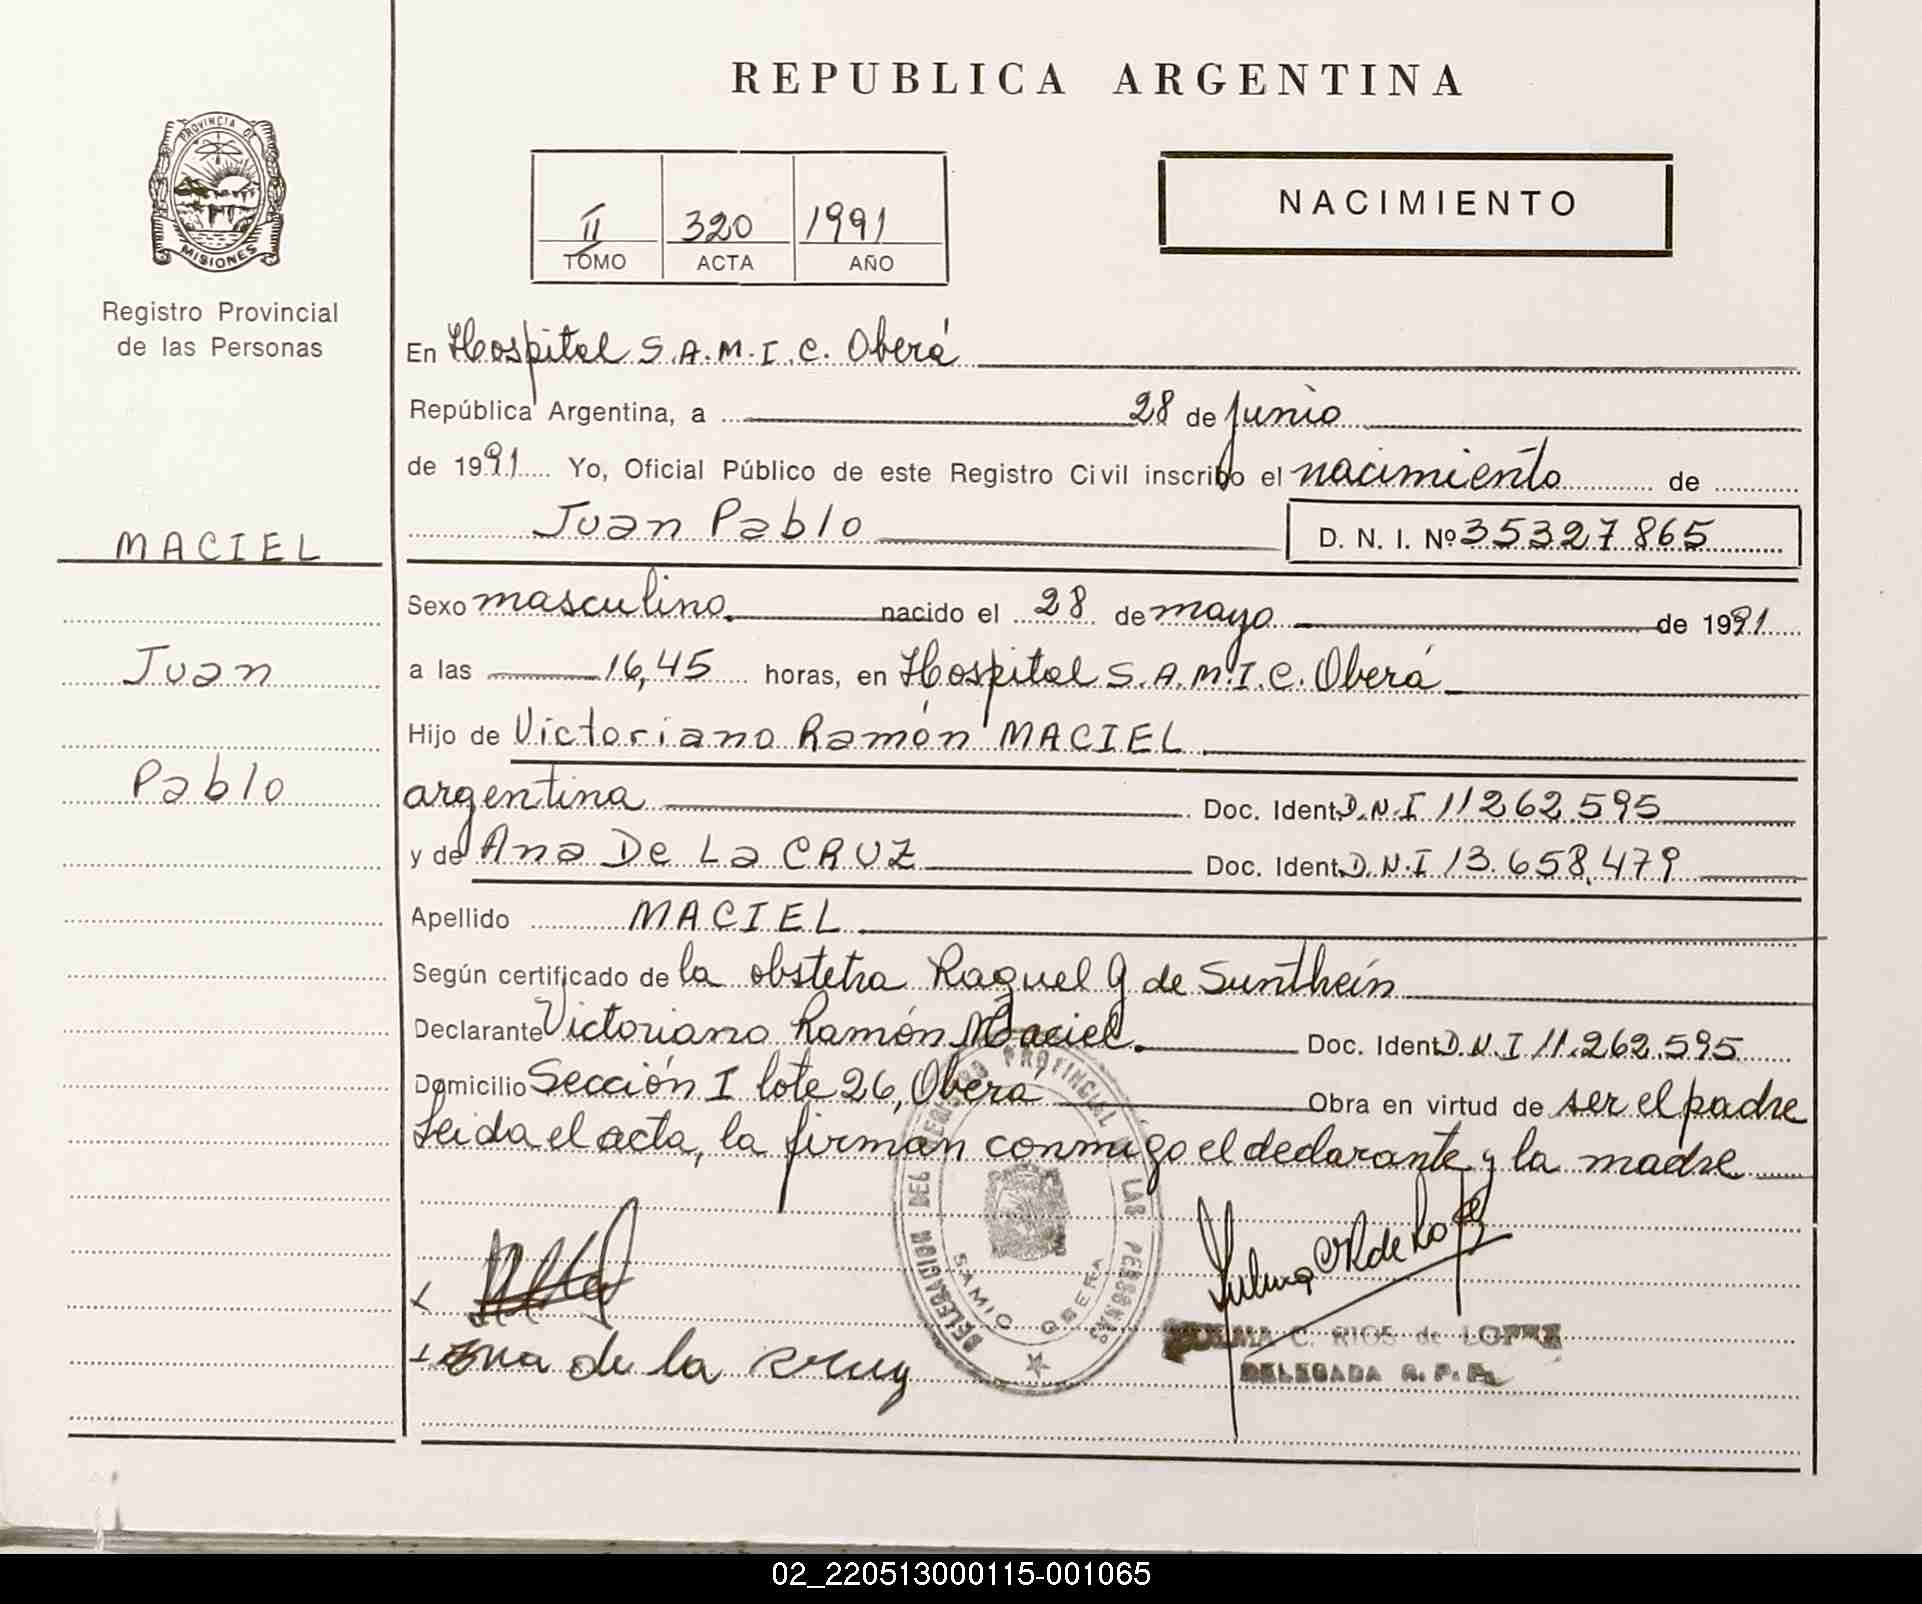 REPUBLICA ARGENTINA
PROVINCIA DE
MISIONES
Registro Provincial
de las Personas
II 320 1991
TOMO ACTA AÑO
NACIMIENTO
En Hospital S.A.M.I.C. Oberá
República Argentina, a 28 de junio
de 1991 Yo, Oficial Público de este Registro Civil inscribo el nacimiento de
Juan Pablo D. N. I. Nº 35327865
MACIEL
Juan
Pablo
Sexo masculino nacido el 28 de mayo de 1991
a las 16,45 horas, en Hospital S.A.M.I.C. Oberá
Hijo de Victoriano Ramón MACIEL
argentina Doc. Ident. D.N.I 11262.595
y de Ana De La CRUZ Doc. Ident. D.N.I 13.658.479
Apellido MACIEL
Según certificado de la obstetra Raquel G de Sunthein
Declarante Victoriano Ramón Maciel. Doc. Ident. D.N.I 11.262.595
Domicilio Sección I lote 26, Obera Obra en virtud de ser el padre
Leida el acta, la firman conmigo el declarante y la madre
DELEGACION DEL REGISTRO PROVINCIAL LAS PERSONAS
SAMIC OBERA
de la
C. RIOS de LOPEZ
DELEGADA R. P. P.
02_220513000115-001065